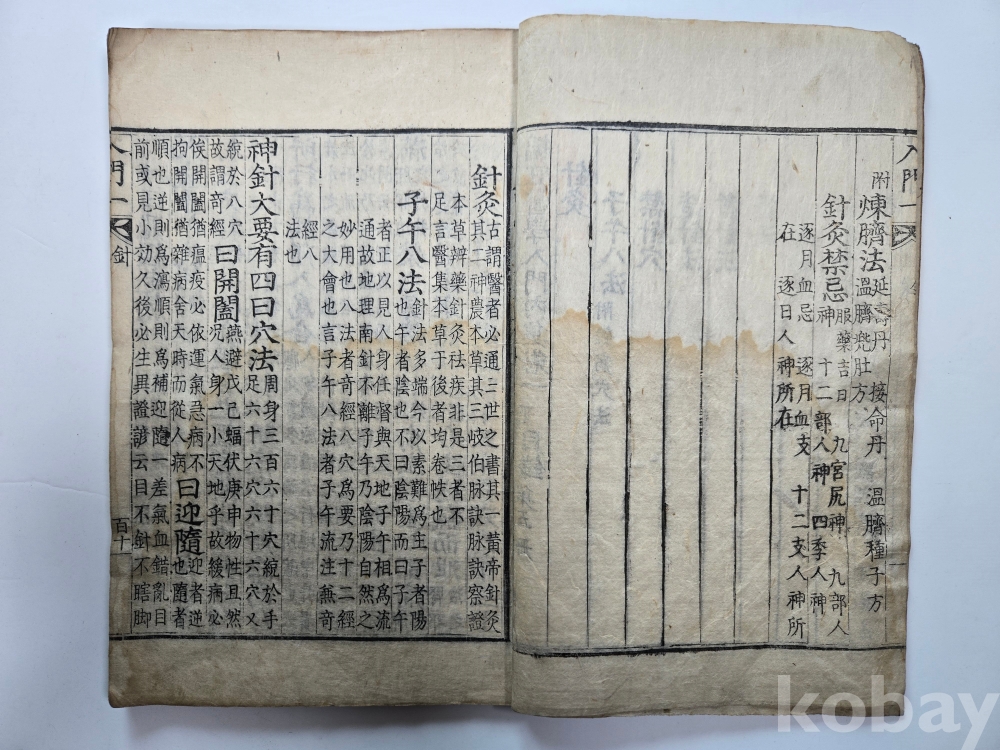 入門一
附 煉臍法 延壽丹 接命丹 溫臍種子方
溫臍兜肚方
針灸禁忌 服藥吉日 九宮尻神 九部人
神 十二部人神 四季人神
逐月血忌 逐月血支 十二支人神所
在 逐日人神所在
針灸 古謂醫者必通三世之書其一黃帝針灸
其二神農本草其三岐伯脉訣脉訣察證
本草辯藥針灸祛疾非是三者不
足言醫集本草于後者均卷帙也
子午八法 針法多端今以素難爲主子者陽
也午者陰也不曰陰陽而曰子午
者正以見人身任督與天地子午相爲流
通故地理南針不離子午乃陰陽自然之
妙用也八法者奇經八穴爲要乃十二經
之大會也言子午八法者子午流注兼奇
經八
法也
神針大要有四曰穴法 周身三百六十穴統於手
足六十六穴六十六穴又
統於八穴
故謂奇經
曰開闔 燕避戊己蝠伏庚申物性且然
況人身一小天地乎故緩病必
俟開闔猶瘟疫必依運氣急病不
拘開闔猶雜病舍天時而從人病
曰迎隨 迎者逆
也隨者
順也逆則爲瀉順則爲補迎隨一差氣血錯亂目
前或見小効久後必生異證諺云目不針不瞎脚
入門一 針 百十
kobay